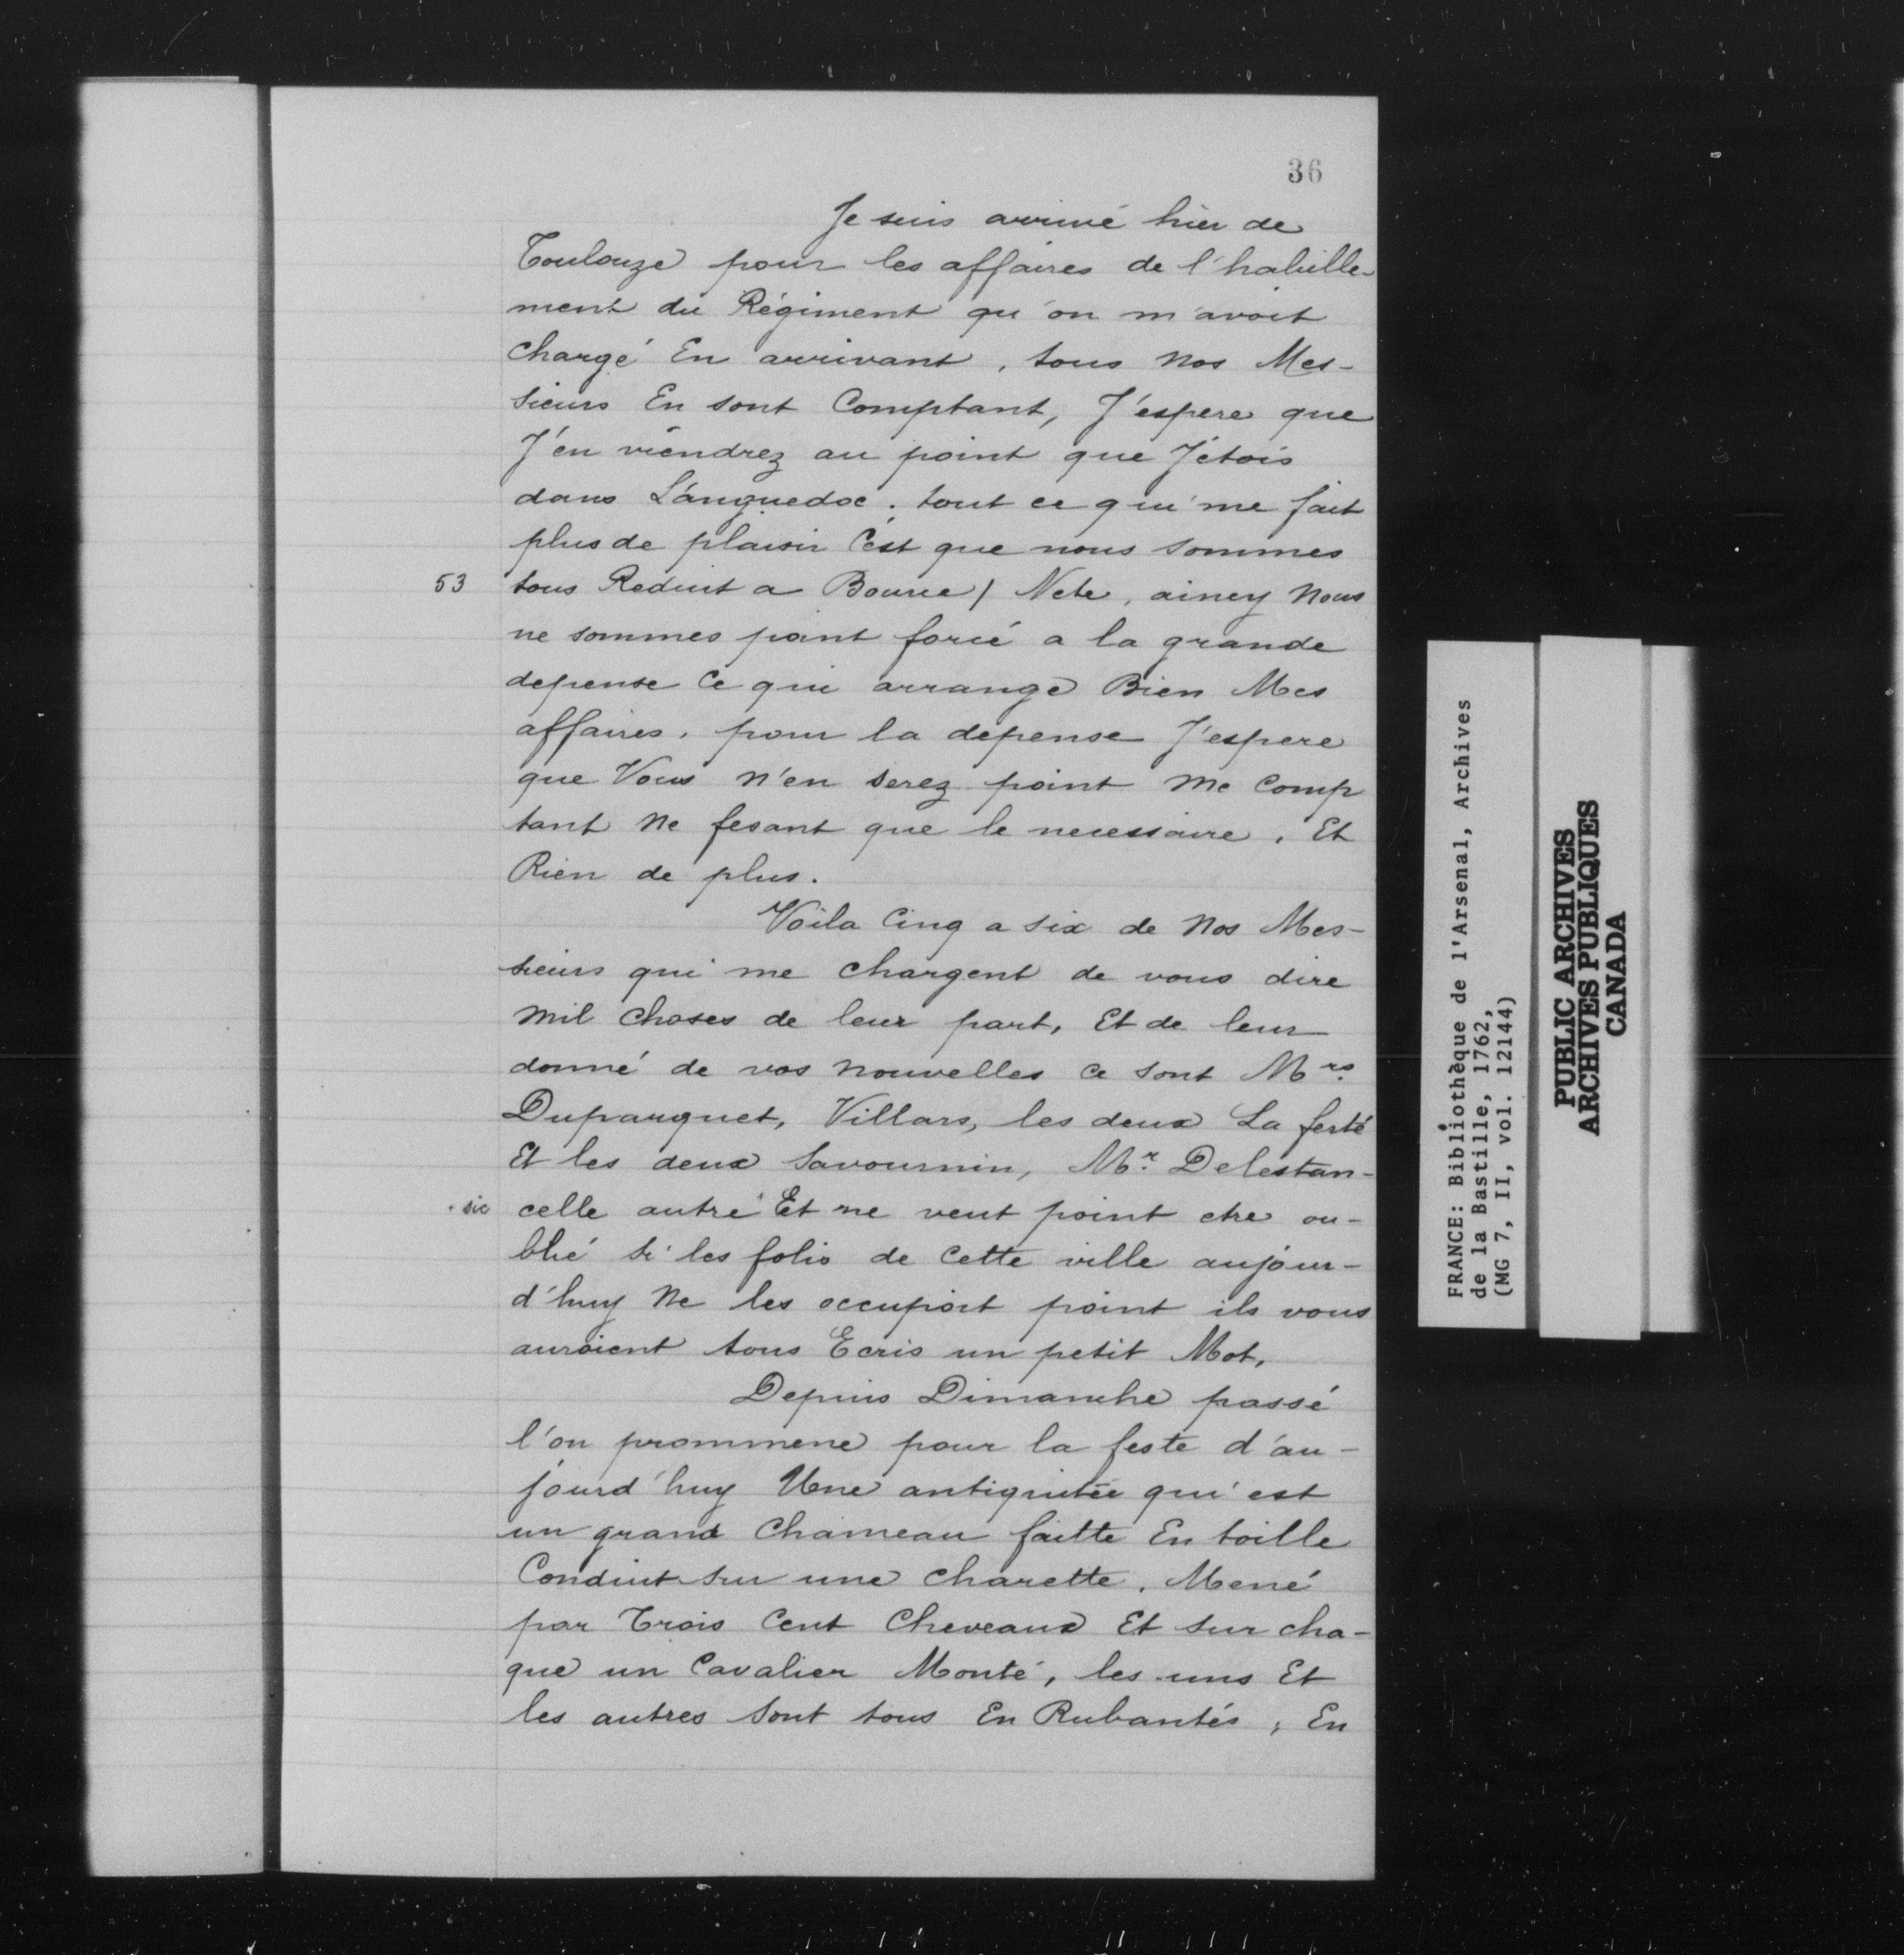 36
Je suis arrivé hier de
Toulouze pour les affaires de l'habille-
ment du Régiment qu'on m'avoit
chargé En arrivant, tous nos Mes-
sieurs En sont Comptant, J'espere que
J'en viendrez au point que J'étois
dans Languedoc. tout ce qui me fait
plus de plaisir C'est que nous sommes
53 tous Reduit a Bource / Nete, aincy Nous
ne sommes point forcé a la grande
depense Ce qui arrange Bien Mes
affaires, pour la depense J'espere
que Vous n'en serez point me Comp
tant Ne fesant que le necessaire, Et
Rien de plus.
Voila Cinq a six de Nos Mes-
sieurs qui me chargent de vous dire
mil choses de leur part, Et de leur
donné de vos nouvelles ce sont Mrs.
Duparquet, Villars, les deux La ferté
Et les deux Savournin, Mr. Delestan-
. sic celle autre Et ne veut point etre ou-
blié si les folis de Cette ville aujour-
d'huy Ne les occupoit point ils vous
auroient tous Ecris un petit Mot,
Depuis Dimanche passé
l'on prommene pour la feste d'au-
jourd'huy Une antiquitée qui est
un grand Chameau faitte En toille
Conduit sur une charette. Mené
par Trois Cent Cheveaux Et sur cha-
que un Cavalier Monté, les uns Et
les autres sont tous En Rubantés, En
FRANCE: Bibliothèque de l'Arsenal, Archives
de la Bastille, 1762,
(MG 7, II, vol. 12144)
PUBLIC ARCHIVES
ARCHIVES PUBLIQUES
CANADA